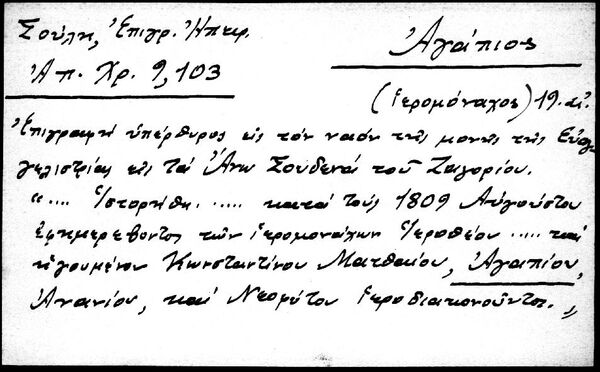 Σούλη, Ἐπιγρ. Ἠπειρ.
Ἀγάπιος
Ηπ. Χρ. 9, 103
(ἱερομόναχος) 19. αἰ.
Ἐπιγραφή ὑπέρθυρος εἰς τόν ναόν τῆς μονῆς τῆς Εὐαγ
γελιστρίας εἰς τά Ἄνω Σουδενά τοῦ Ζαγορίου.
".... Ἱστορήθη. ..... κατά τούς 1809 Αὐγούστου
ἐφημερεβοντος τῶν ἱερομονάχων Ἱεροθέου ..... καί
ἡγουμένου Κωνσταντίνου Ματθαίου, Ἀγαπίου,
Ἀνανίου, καί Νεοφύτου ἱεροδιακονοῦντος."